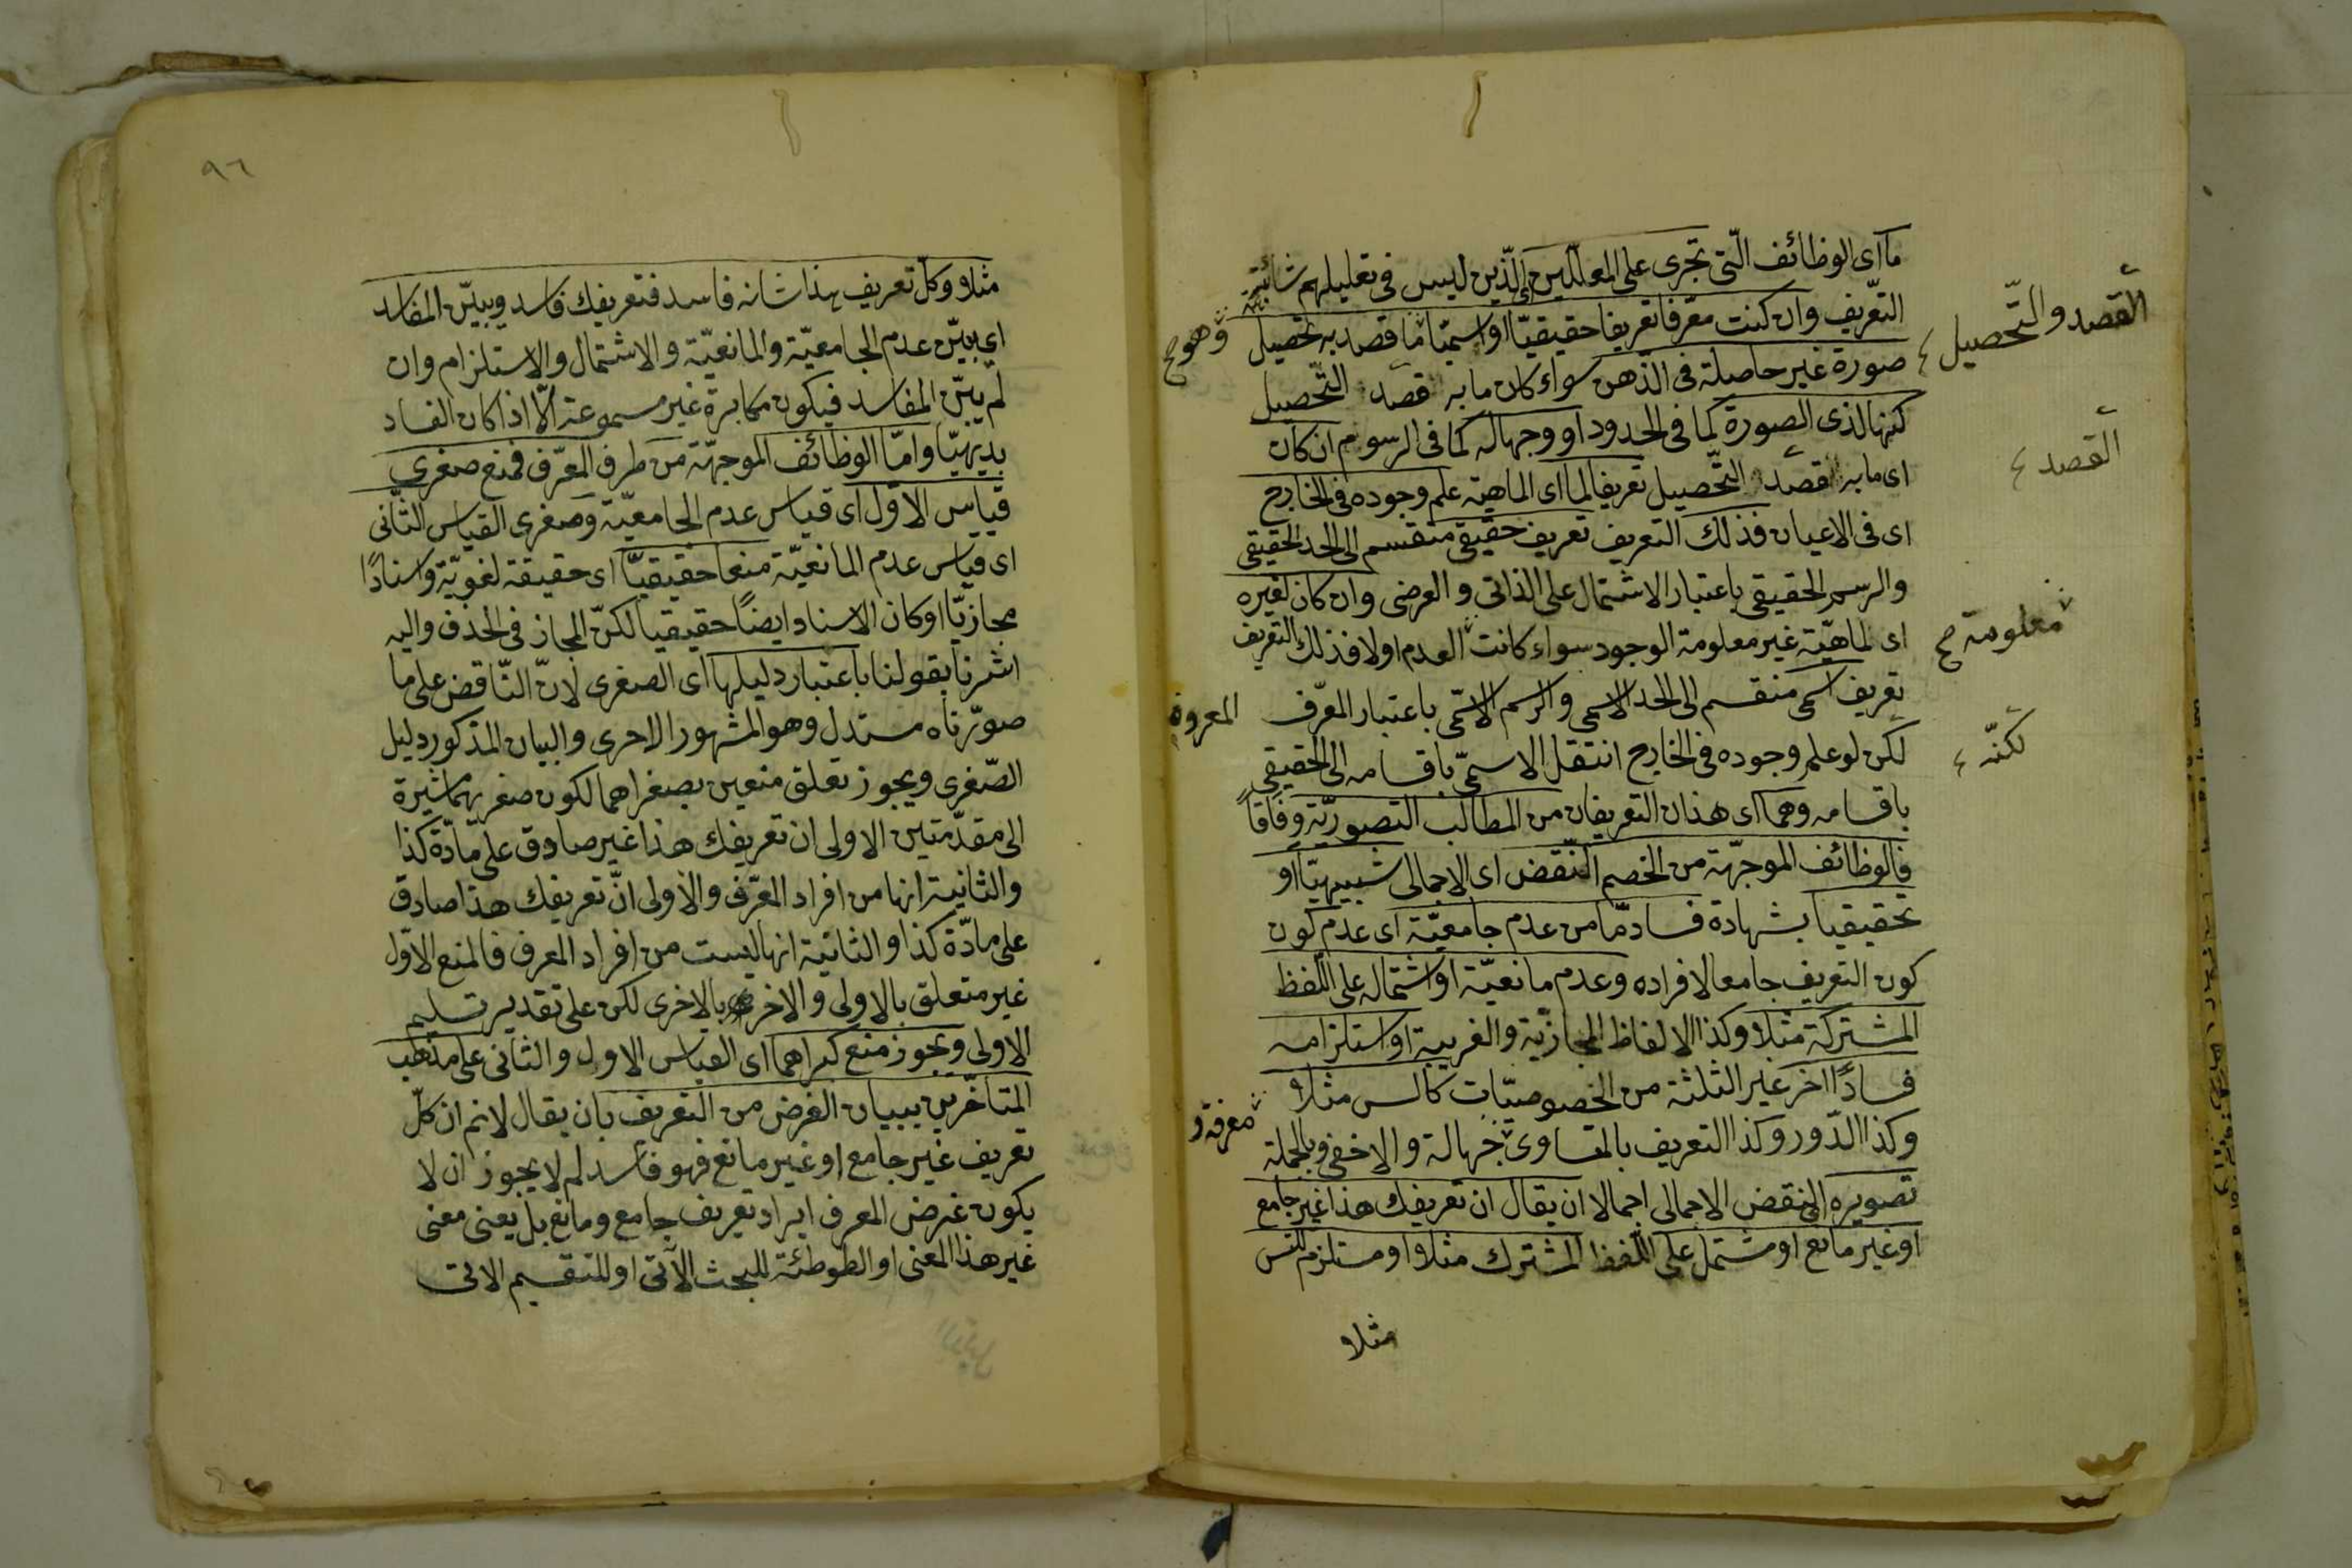 ما اى الوظائف الّتى تجرى على المعلّلين الّذين ليس فى تعليلهم شائبة
التعّريف وان كنت معرّفا تعريفا حقيقيّا او اسميّا ما قصد به تحصيل
وهو ح
صورة غير حاصلة فى الذّهن سواء كان ما به قصد التّحصيل
القصد والتّحصيل ع
كنها لذى الصورة كما فى الحدود او وجها له كما فى الرسوم ان كان
اى ما به قصد التّحصيل تعريفا لما اى الماهية علم وجوده فى الخارج
القصد ع
اى فى الاعيان فذلك التعريف تعريف حقيقى منقسم الى الحد الحقيقى
والرسم الحقيقى باعتبار الاشتمال على الذاتى والعرضى وان كان لغيره
اى لماهيّة غير معلومة الوجود سواء كانت العدم اولا فذلك التعريف
معلومة ح
تعريف اسمى منقسم الى الحد الاسمى والرسم الاسمّى باعتبار المعرّف
لكن لو علم وجوده فى الخارج انتقل الاسمىّ باقسامه الى الحقيقى
لكنّه ع
باقسامه وهما اى هذان التعريفان من المطالب التصوريّة وفاقاً
فالوظائف الموجهّة من الخصم النّقض اى الاجمالى شبيهيّا او
تحقيقيا بشهادة فساد مّا من عدم جامعيّة اى عدم كون
كون التعريف جامعا لافراده وعدم مانعيّة او اشتماله على اللّفظ
المشتركة مثلا وكذا الالفاظ المجازيّة والغريبة او استلزامه
فسادًا اخر غير الثلثة من الخصوصيّات كالس مثلا
وكذا الدّور وكذا التعريف بالمساوى جهالة والاخفى وبالجملة
معرفة و
تصويره اى النقض الاجمالى اجمالا ان يقال ان تعريفك هذا غير جامع
او غير مانع او مشتمل على اللّفظ المشترك مثلا او مستلزم للتس
مثلا
٩٦
مثلا وكلّ تعريف هذا شانه فاسد فتعريفك فاسد ويبيّن المفاسد
اى يبيّن عدم الجامعيّة والمانعيّة والاشتمال والاستلزام وان
لم يبيّن المفاسد فيكون مكابرة غير مسموعة الّا اذا كان الفساد
بديهيّا وامّا الوظائف الموجهّة من طرف المعرّف فمنع صغرى
قياس الاوّل اى قياس عدم الجامعيّة وصغرى القياس الثّانى
اى قياس عدم المانعيّة منعا حقيقيّا اى حقيقة لغويّة واسنادًا
مجازيّا او كان الاسناد ايضًا حقيقيا لكنّ المجاز فى الحذف واليه
اشرنا بقولنا باعتبار دليلها اى الصغرى لانّ النّاقض على ما
صوّرناه مستدل وهو المشهور الاحرى والبيان المذكور دليل
الصّغرى ويجوز تعلق منعين بصغراهما لكون صغريهما مشيرة
الى مقدّمتين الاولى ان تعريفك هذا غير صادق على مّادّة كذا
والثانية انها من افراد المعرّف والاولى انّ تعريفك هذا صادق
على مادّة كذا والثانية انها ليست من افراد المعرف فالمنع الاوّل
غير متعلق بالاولى والاخرى بالاخرى لكن على تقدير تسليم
الاولى ويجوز منع كبراهما اى القياس الاول والثانى على مذهب
المتاخّرين ببيان الغرض من التعريف بان يقال لانم ان كلّ
تعريف غير جامع او غير مانع فهو فاسد لم لا يجوز ان لا
يكون غرض المعرف ايراد تعريف جامع ومانع بل يعنى معنى
غير هذا المعنى او الطوطئة للبحث الآتى او للتقسيم الاتى